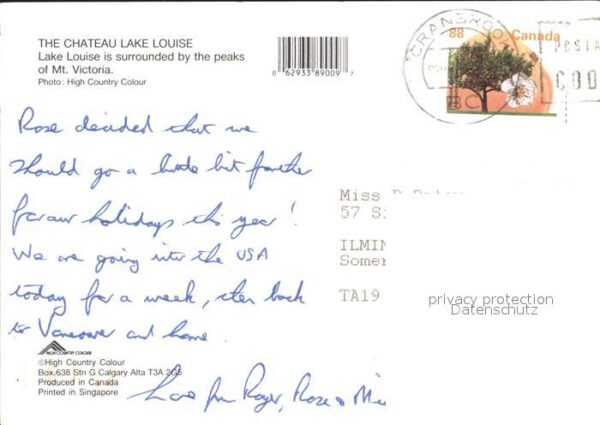 THE CHATEAU LAKE LOUISE
Lake Louise is surrounded by the peaks
of Mt. Victoria.
Photo: High Country Colour
0 62933 89009 7
CRANBROOK
BC
88 Canada
POSTA
COD
Rose decided that we
should go a little bit further
for our holidays this year!
We are going into the USA
today for a week, then back
to Vancouver and home.
Miss
57 S
ILMIN
Somer
TA19
privacy protection
Datenschutz
HIGH COUNTRY COLOUR
©High Country Colour
Box 638 Stn G Calgary Alta T3A 2G5
Produced in Canada
Printed in Singapore
Love from Roger, Rose &